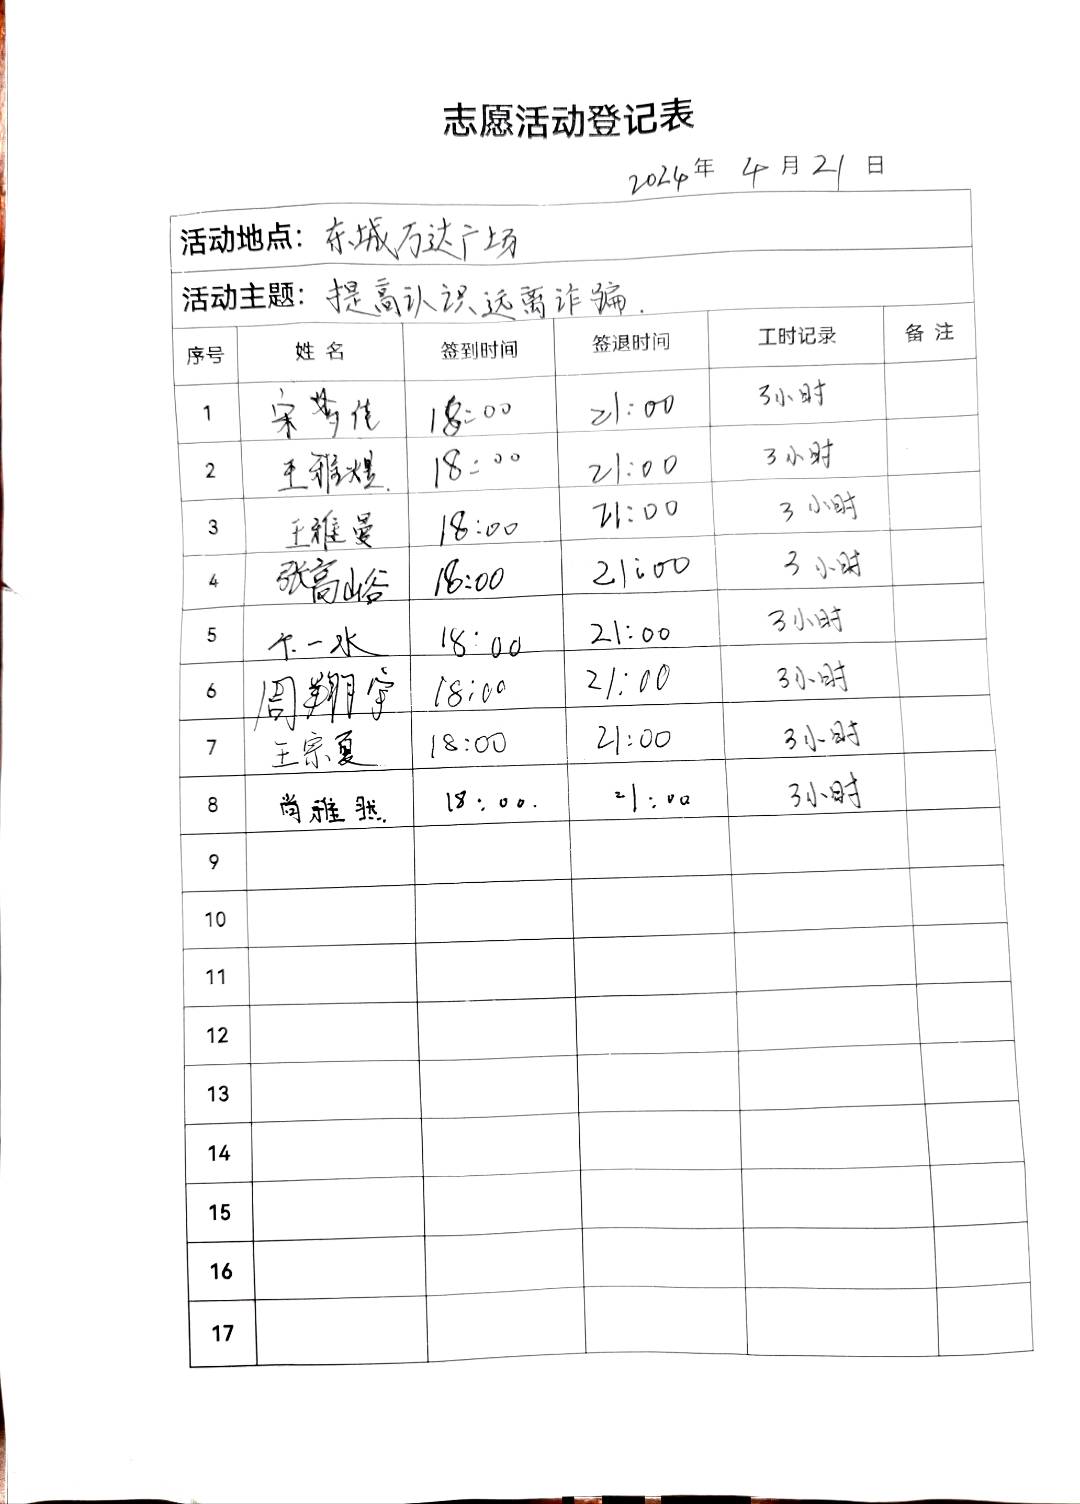 志愿活动登记表
2024年 4月21日
活动地点：东城万达广场
活动主题：提高认识远离诈骗.
序号 姓名 签到时间 签退时间 工时记录 备注
1 宋梦佳 18:00 21:00 3小时
2 王雅煜. 18:00 21:00 3小时
3 王雅曼 18:00 21:00 3小时
4 张高峪 18:00 21:00 3小时
5 一水 18:00 21:00 3小时
6 周翔宇 18:00 21:00 3小时
7 王宗夏 18:00 21:00 3小时
8 尚雅然. 18:00. 21:00 3小时
9
10
11
12
13
14
15
16
17